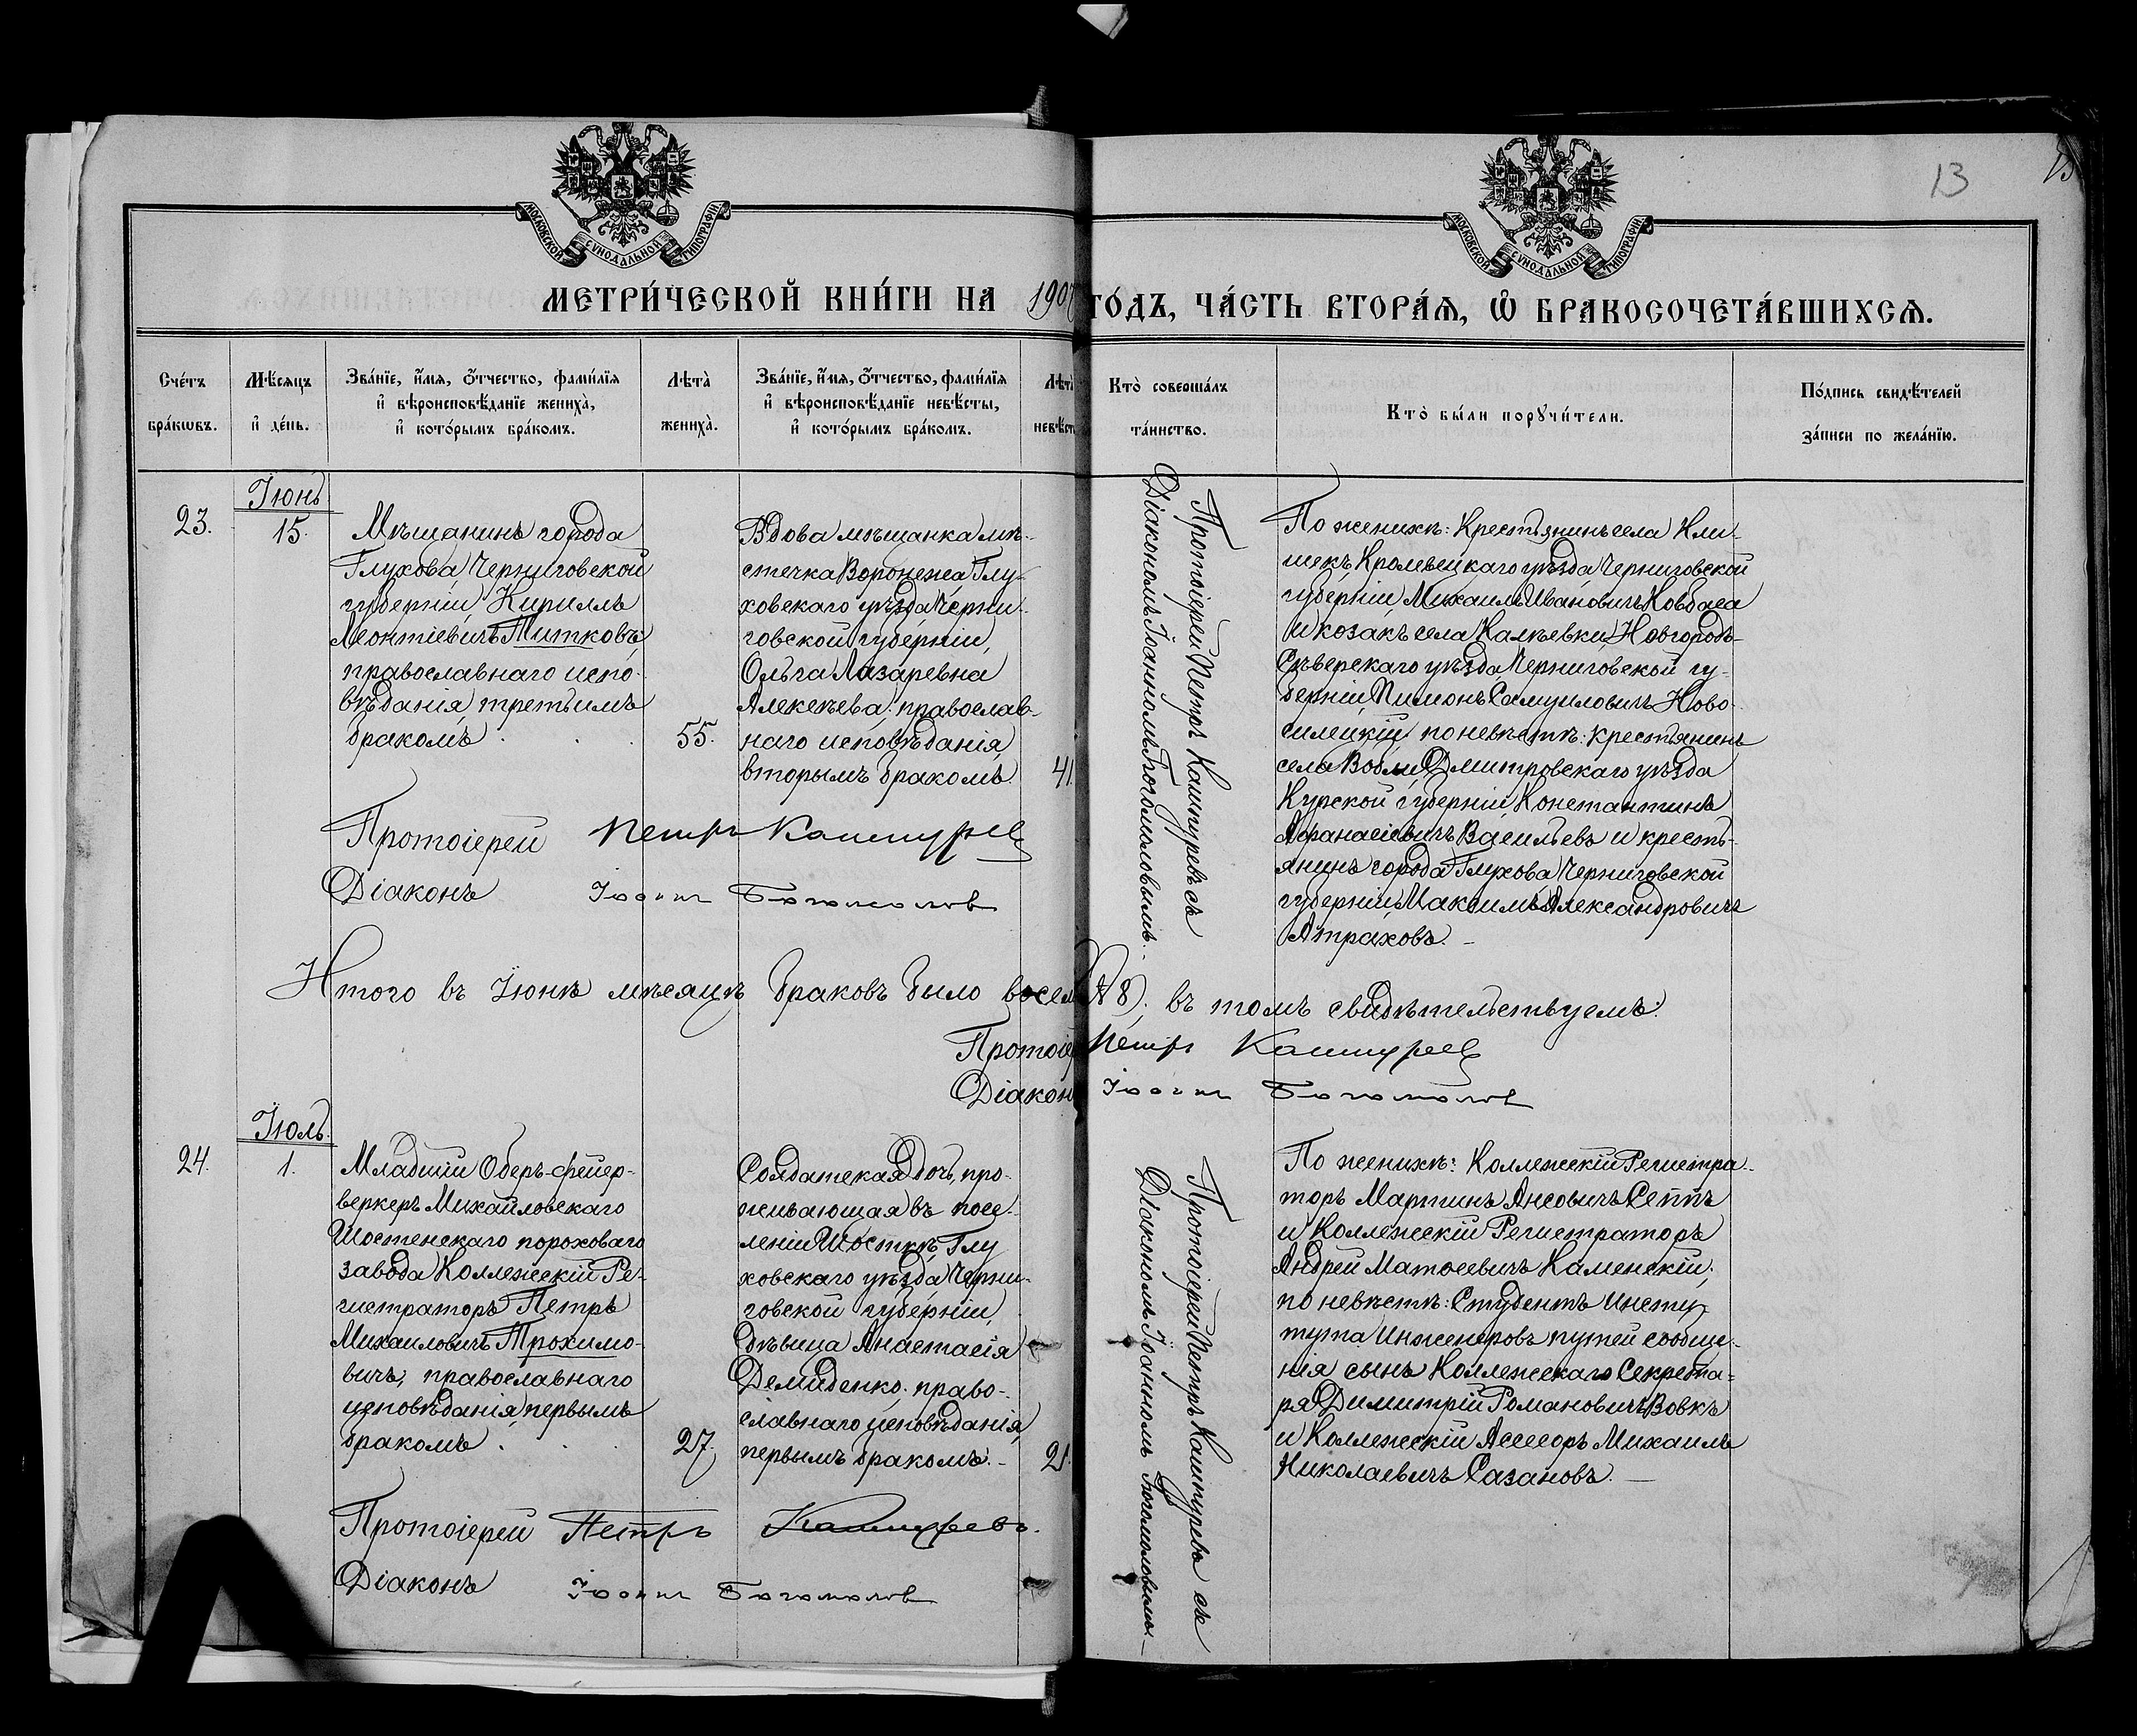 МОСКОВСКОЙ СУНОДАЛЬНОЙ ТИПОГРАФІИ
МОСКОВСКОЙ СУНОДАЛЬНОЙ ТИПОГРАФІИ
13
МЕТРИ́ЧЕСКОЙ КНИ́ГИ НА 1907 ГО́ДЪ, ЧА́СТЬ ВТОРА́Я, Ѽ БРАКОСОЧЕТА́ВШИХСЯ.
Сче́тъ
бра́кѡвъ.
Мѣ́сяцъ
и҆ де́нь.
Зва́нїе, и҆́мя, ѻ҆́тчество, фамѝлїя
и҆ вѣроисповѣ́данїе жениха̀,
и҆ кото́рымъ бра́комъ.
Лѣта̀
жениха̀.
Зва́нїе, и҆́мя, ѻ҆́тчество, фамѝлїя
и҆ вѣроисповѣ́данїе невѣ́сты,
и҆ кото́рымъ бра́комъ.
Лѣта̀
невѣ́сты
Кто̀ соверша́лъ
та́инство.
Кто̀ бы́ли порꙋчи́тели.
По́дпись свидѣ́телей
за́писи по жела́нїю.
Іюнь
23.
15.
Мѣщанинъ города
Глухова Черниговской
губерніи, Кириллъ
Леонтіевичъ Титковъ,
православнаго испо-
вѣданія, третьимъ
бракомъ . . .
55.
Вдова мѣщанка мѣ-
стечка Воронежа Глу-
ховскаго уѣзда Черни-
говской губерніи,
Ольга Лазаревна
Алексѣева, православ-
наго исповѣданія,
вторымъ бракомъ.
41.
Протоіерей Петръ Кашпуревъ съ
Діакономъ Іоанномъ Богомоловымъ.
По женихѣ: Крестьянинъ села Кли-
шекъ Кролевецкаго уѣзда Черниговской
губерніи, Михаилъ Ивановичъ Ковбаса
и козакъ села Калѣевки, Новгородъ-
Сѣверскаго уѣзда, Черниговской гу-
берніи, Пимонъ Самуиловичъ Ново-
силецкій; по невѣстѣ: крестьянинъ
села Вобли Дмитровскаго уѣзда
Курской губерніи, Константинъ
Афанасіевичъ Васильевъ и кресть-
янинъ города Глухова Черниговской
губерніи, Максимъ Александровичъ
Атраховъ. —
Протоіерей Петръ Кашпурев
Діаконъ Іоанн Богомолов
Итого въ Іюнѣ мѣсяцѣ браковъ было восемь (8), въ томъ свидѣтельствуемъ:
Протоіе Петръ Кашпурев
Діакон Іоанн Богомолов
Іюль.
24.
1.
Младшій Оберъ-фейер-
веркеръ Михайловскаго
Шостенскаго пороховаго
завода Коллежскій Ре-
гистраторъ Петръ
Михаиловичъ Трохимо-
вичъ, православнаго
исповѣданія, первымъ
бракомъ . . .
27.
Солдатская дочь, про-
живающая въ посе-
леніи Шосткѣ, Глу
ховскаго уѣзда Черни-
говской губерніи,
дѣвица Анастасія
Демиденко, право-
славнаго исповѣданія,
первымъ бракомъ. -
21.
Протоіерей Петръ Кашпуревъ съ
Діакономъ Іоанномъ Богомоловымъ. —
По женихѣ: Коллежскій Регистра-
торъ Мартинъ Ансовичъ Сеппъ
и Коллежскій Регистраторъ
Андрей Матѳеевичъ Каменскій;
по невѣстѣ: Студентъ Инсти-
тута Инженеровъ путей сообще-
нія сынъ Коллежскаго Секрета-
ря Димитрій Романовичъ Вовкъ
и Коллежскій Ассесоръ Михаилъ
Николаевичъ Сазановъ. —
Протоіерей Петръ Кашпуревъ.
Діаконъ Іоанн Богомолов